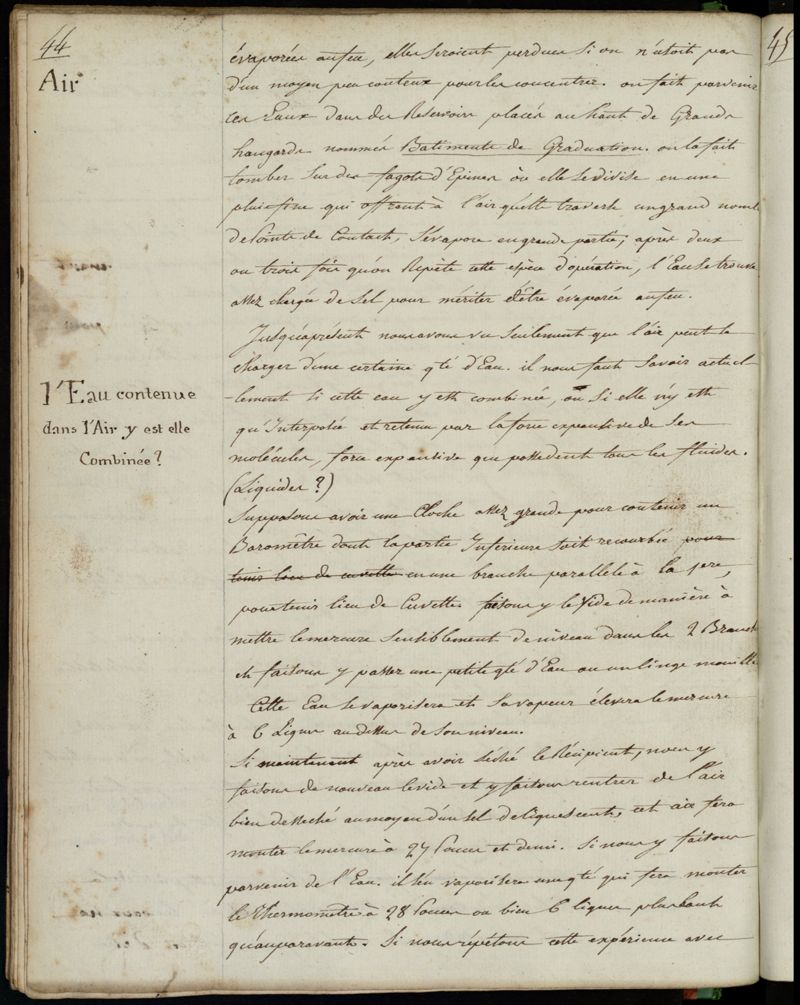 44
Air
évaporées au feu, elles seroient perdues si on n'usoit pas
d'un moyen peu couteux pour les concentrer. on fait parvenir
ces Eaux dans des Reservoirs placés au haut de Grands
hangards nommés Batiments de Graduation. on la fait
tomber sur des fagots d'Epines où elle se divise en une
pluie fine qui offrant à l'air qu'elle traverse un grand nomb
de Points de Contact, s'évapore en grande partie; après deux
ou trois fois qu'on Répète cette espèce d'opération, l'Eau se trouve
assez chargée de sel pour mériter d'être évaporée au feu.
Jusqu'à présent nous avons vu seulement que l'air peut se
charger d'une certaine qté d'Eau. il nous faut savoir actuel-
-lement si cette eau y est combinée, ou si elle n'y est
qu'Interposée et retenue par la force expansive de ses
molécules, force expansive que possedent tous les fluides.
(Liquides ?)
l'Eau contenue
dans l'Air y est elle
Combinée ?
Supposons avoir une Cloche assez grande pour contenir un
Baromêtre dont la partie Inférieure soit recourbée pour
tenir lieu de cuvette en une branche parallele à la 1ere,
pour tenir lieu de Cuvette. faisons y le Vide de manière à
mettre le mercure sensiblement de niveau dans les 2 Branch
et faisons y passer une petite qté d'Eau ou un linge mouillé
Cette Eau se vaporisera et sa vapeur élevera le mercure
à 6 Lignes au dessus de son niveau.
Si maintenant après avoir séché le Récipient, nous y
faisons de nouveau le vide et y faisons rentrer de l'air
bien desseché au moyen d'un sel deliquescent, cet air fera
monter le mercure à 27 Pouces et demi. Si nous y faisons
parvenir de l'Eau. il s'en vaporisera une qté qui fera monter
le Thermomêtre à 28 Pouces ou bien 6 lignes plus haut
qu'auparavant. Si nous répétons cette expérience avec
45